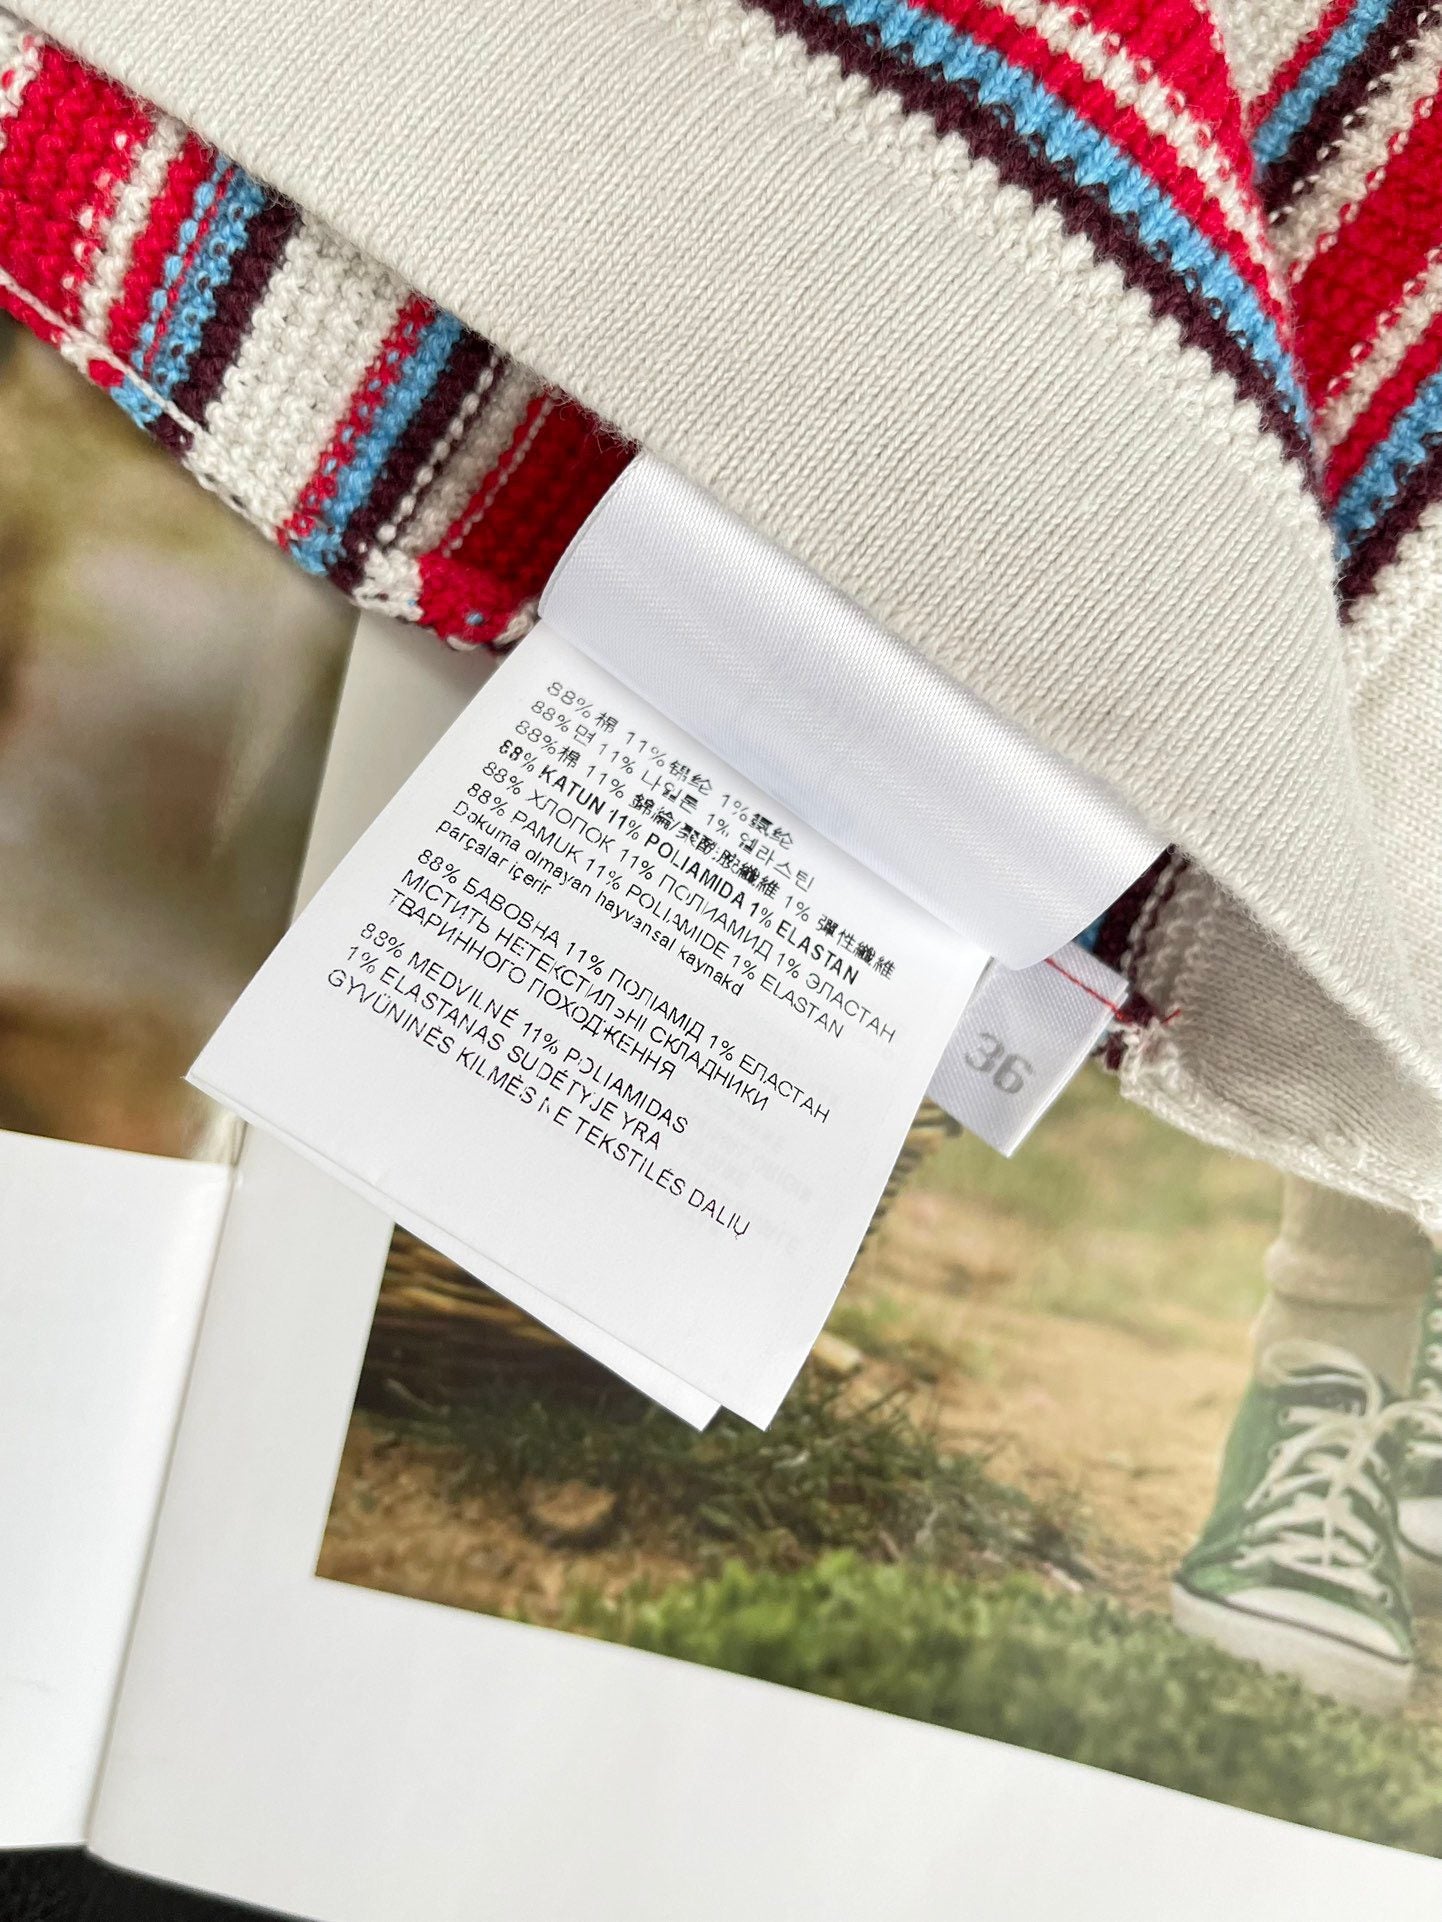 88% 棉 11% 锦纶 1% 氨纶
88% 면 11% 나일론 1% 엘라스틴
88% 棉 11% 錦綸/聚醯胺纖維 1% 彈性纖維
88% KATUN 11% POLIAMIDA 1% ELASTAN
88% ХЛОПОК 11% ПОЛИАМИД 1% ЭЛАСТАН
88% PAMUK 11% POLIAMIDE 1% ELASTAN
Dokuma olmayan hayvansal kaynakd
parçalar içerir
88% БАВОВНА 11% ПОЛІАМІД 1% ЕЛАСТАН
МІСТИТЬ НЕТЕКСТИЛЬНІ СКЛАДНИКИ
ТВАРИННОГО ПОХОДЖЕННЯ
88% MEDVILNĖ 11% POLIAMIDAS
1% ELASTANAS SUDĖTYJE YRA
GYVŪNINĖS KILMĖS NE TEKSTILĖS DALIŲ
36